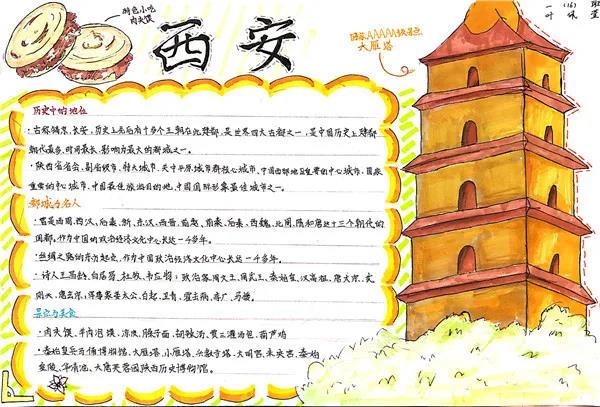 特色小吃
肉夹馍
西安
国家AAAAA级景点
大雁塔
历史中的地位
·古称镐京、长安，历史上先后有十多个王朝在此建都，是世界四大古都之一，是中国历史上建都
朝代最多，时间最长，影响力最大的都城之一。
·陕西省省会，副省级市，特大城市，关中平原城市群核心城市，中国西部地区重要的中心城市，国家
重要的中心城市，中国最佳旅游目的地，中国国际形象最佳城市之一。
都城与名人
·曾是西周、西汉、后秦、新、东汉、西晋、前赵、前秦、后秦、西魏、北周、隋和唐这十三个朝代的
国都。作为中国的政治经济文化中心长达一千多年。
·丝绸之路的东方起点，作为中国政治经济文化中心长达一千多年。
·诗人王昌龄，白居易，杜牧，韦应物；政治家周文王，周武王，秦始皇，汉高祖，唐太宗，武
则天，唐玄宗；军事家姜太公，白起，卫青，霍去病，李广，马援。
景点与美食
·肉夹馍、羊肉泡馍、凉皮、臊子面、胡辣汤、贾三灌汤包、葫芦鸡
·秦始皇兵马俑博物馆、大雁塔、小雁塔、大明宫、未央宫、秦始
皇陵、华清池、大唐芙蓉园、陕西历史博物馆。